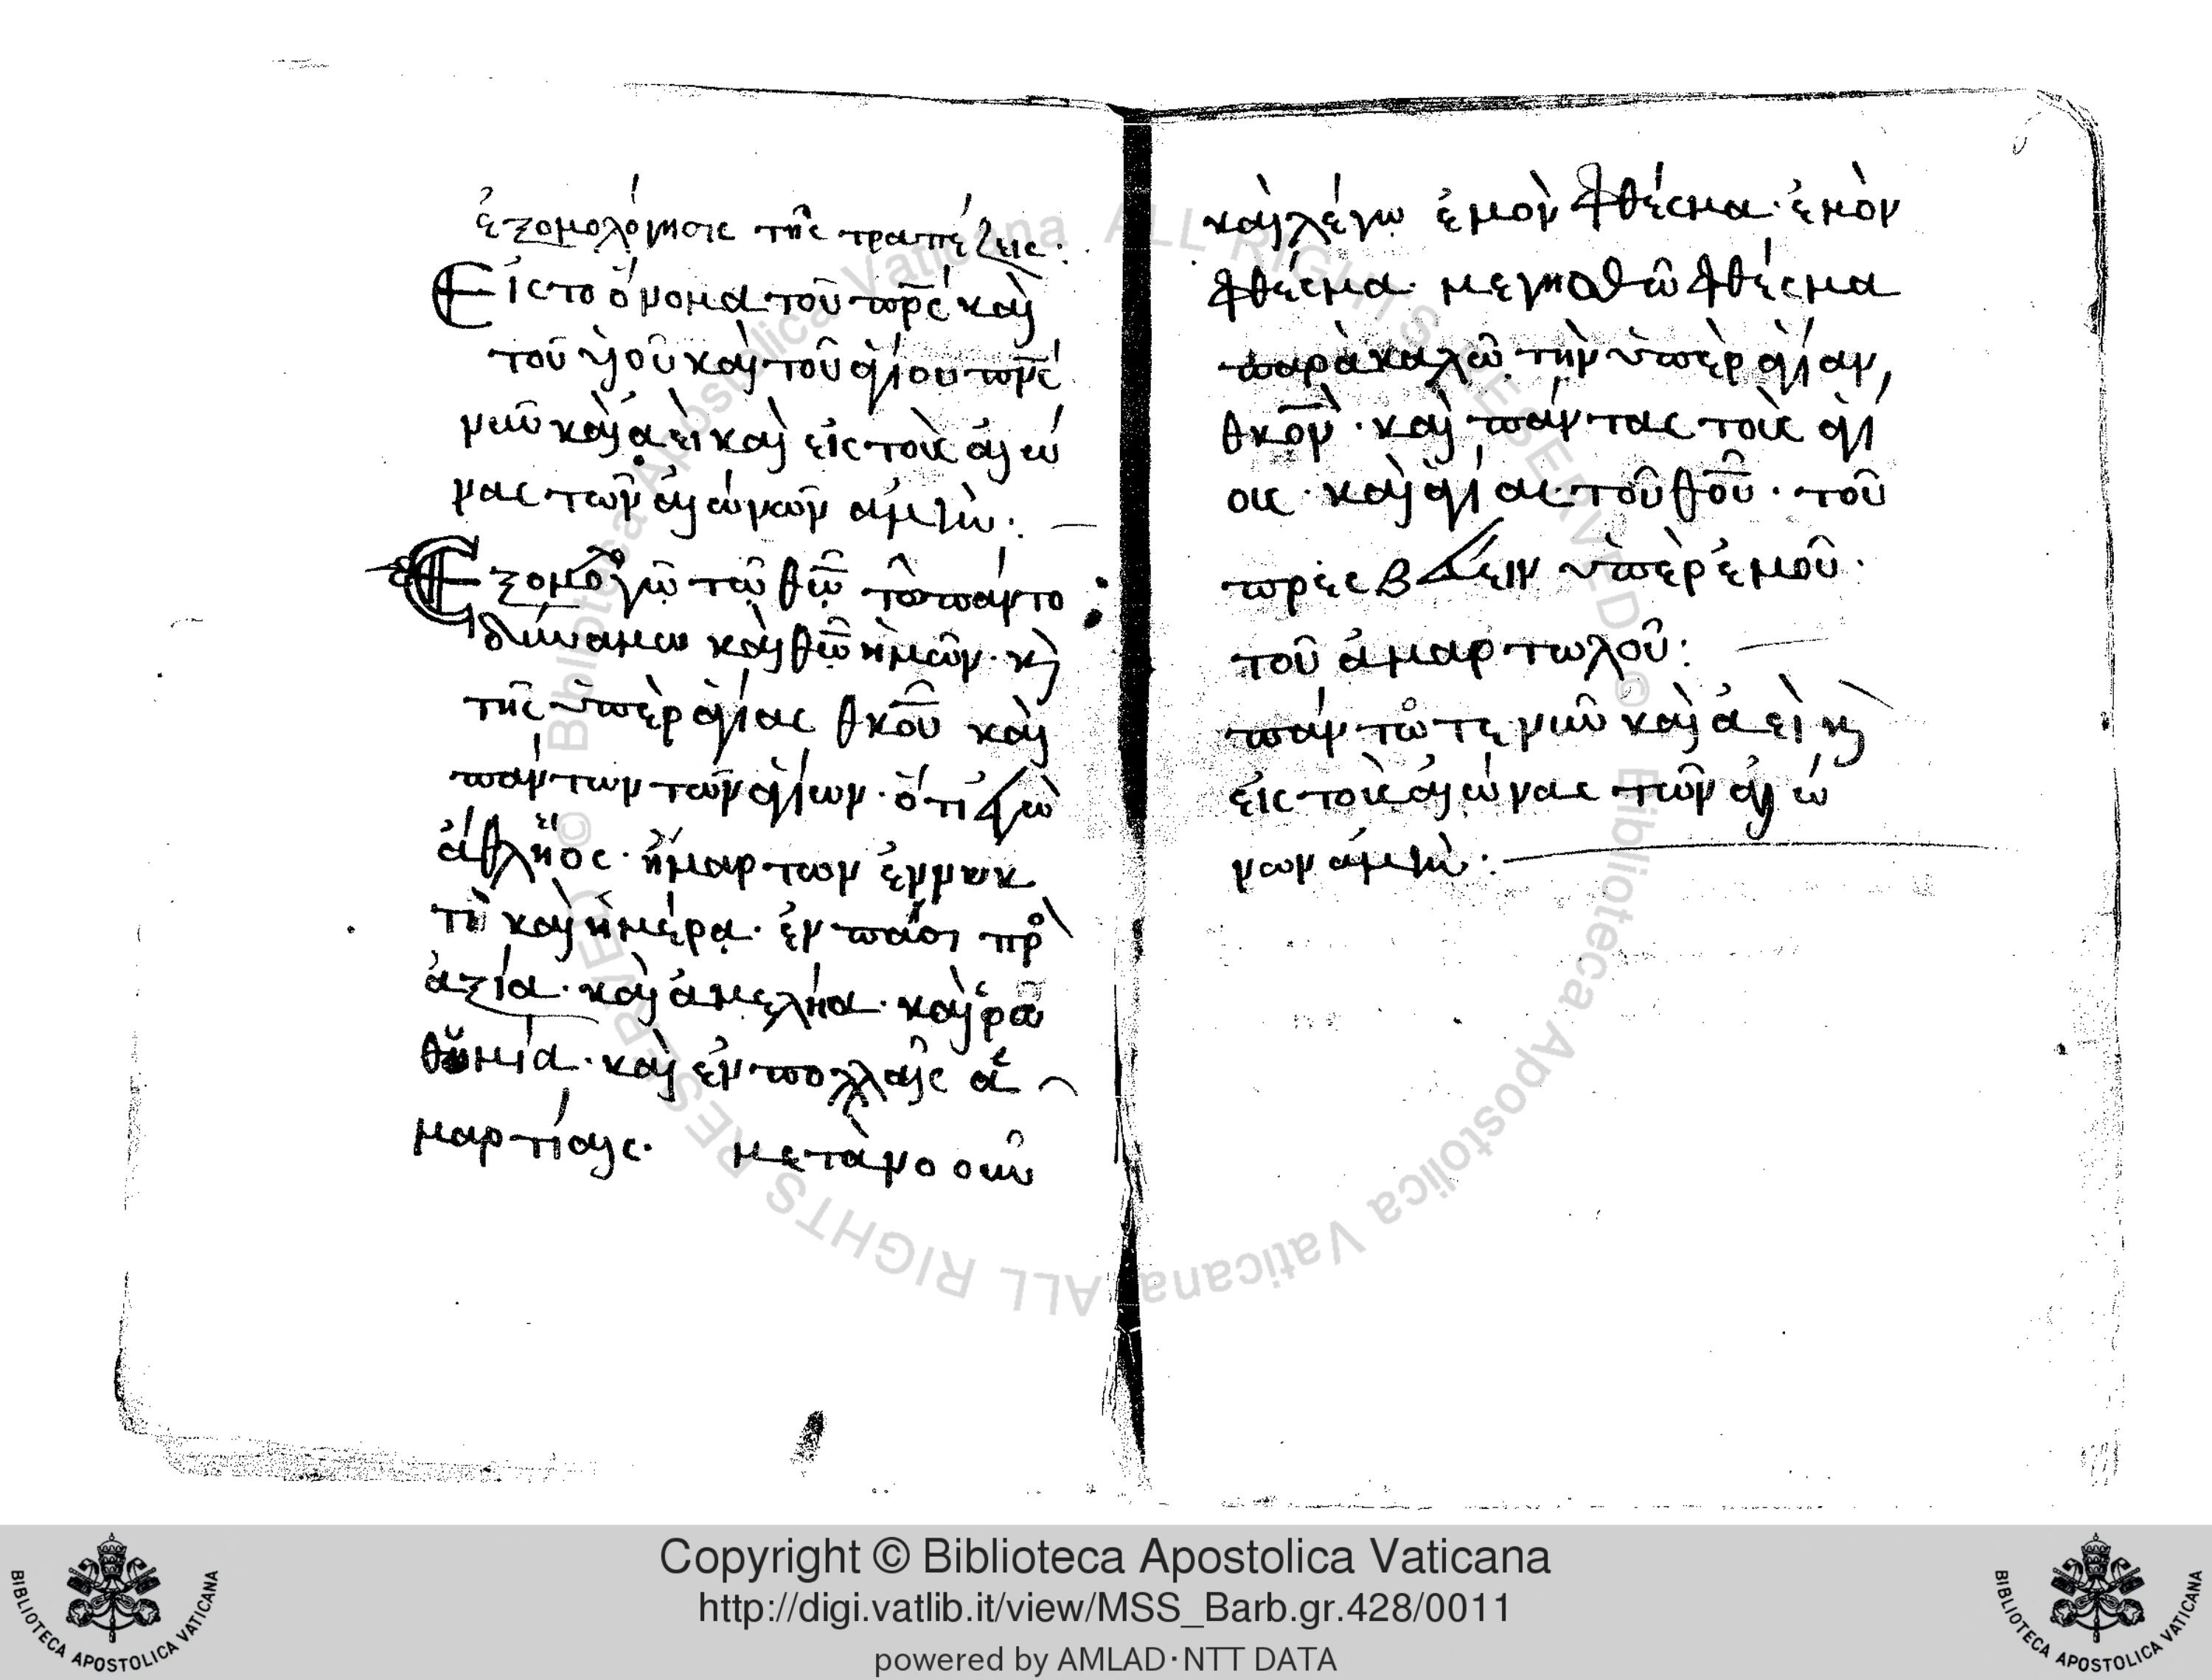 ἐξομολόγησις τῆς τραπέζεις·
Εἰς το ὄνομα τοῦ πρς καὶ
τοῦ ὑιοῦ καὶ τοῦ ἁγίου πνς
νῦν καὶ ἀεὶ καὶ εἰς τοὺς αἰώ
νας τῶν αἰώνων ἀμήν:
Ἐξομολογῶ τῶ θῶ τῶ παντο
δύναμω καὶ θῶ ἡμῶν· κὶ
τῆς ὑπὲρ ἁγίας θκοῦ καὶ
πάντων τῶν ἁγίων· ὅτι ἐγὼ
ἄθλϊος· ἥμαρτων ἐν νυκ
τῒ καὶ ἡμέρα· ἐν πάσι πρ
ἀξία· καὶ ἀμελήα· καὶ ρα
θυμία· καὶ ἐν πολλαῖς ἁ
μαρτίαις. μετὰνοοῦν
καὶ λέγω ἐμὸν φθέσμα· ἐμὸν
φθέσμα· μεγηαθῶ φθέσμα
παρὰκαλῶ τὴν ὑπὲρ ἁγίαν,
θκον· καὶ πάντας τοὺς ἁγί
ους· καὶ ἁγίας τοῦ θοῦ· τοῦ
πρεσβεύειν ὑπὲρ ἐμοῦ·
τοῦ ἁμαρτωλοῦ:
πάντωτε νῦν καὶ ἀεὶ κὶ
εἰς τοὺς αἰώνας τῶν αἰώ
νων ἀμήν:
Copyright © Biblioteca Apostolica Vaticana
http://digi.vatlib.it/view/MSS_Barb.gr.428/0011
powered by AMLAD·NTT DATA
BIBLIOTECA APOSTOLICA VATICANA
BIBLIOTECA APOSTOLICA VATICANA